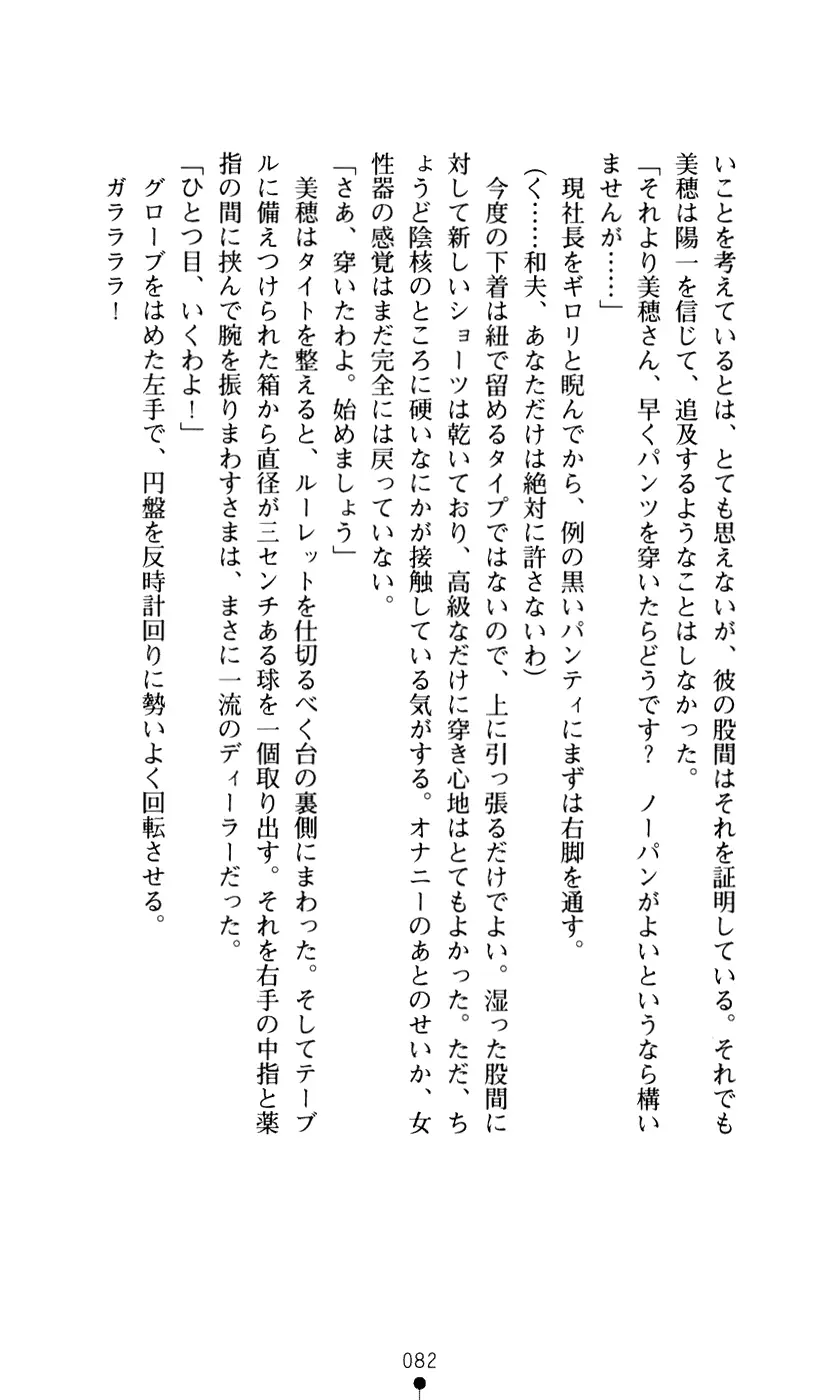 いことを考えているとは、とても思えないが、彼の股間はそれを証明している。それでも
美穂は陽一を信じて、追及するようなことはしなかった。
「それより美穂さん、早くパンツを穿いたらどうです？　ノーパンがよいというなら構い
ませんが……」
　現社長をギロリと睨んでから、例の黒いパンティにまずは右脚を通す。
（く……和夫、あなただけは絶対に許さないわ）
　今度の下着は紐で留めるタイプではないので、上に引っ張るだけでよい。湿った股間に
対して新しいショーツは乾いており、高級なだけに穿き心地はとてもよかった。ただ、ち
ょうど陰核のところに硬いなにかが接触している気がする。オナニーのあとのせいか、女
性器の感覚はまだ完全には戻っていない。
「さあ、穿いたわよ。始めましょう」
　美穂はタイトを整えると、ルーレットを仕切るべく台の裏側にまわった。そしてテーブ
ルに備えつけられた箱から直径が三センチある球を一個取り出す。それを右手の中指と薬
指の間に挟んで腕を振りまわすさまは、まさに一流のディーラーだった。
「ひとつ目、いくわよ！」
　グローブをはめた左手で、円盤を反時計回りに勢いよく回転させる。
　ガラララ！
082